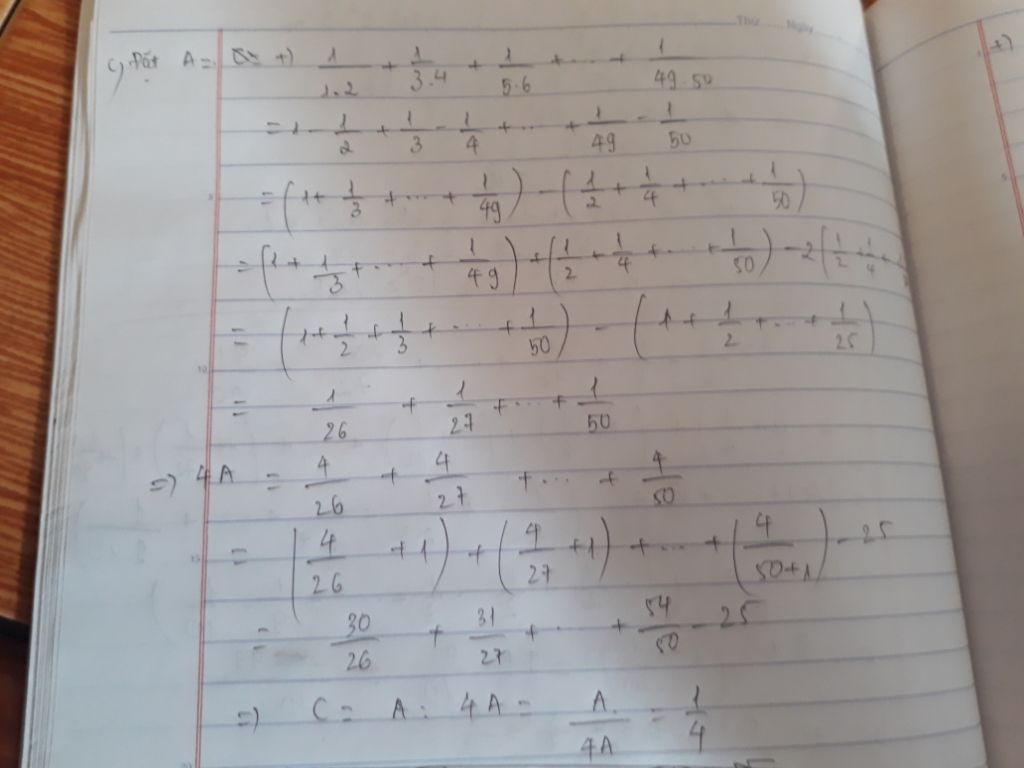 Thứ Ngày
c) Đặt A = +) 1/1.2 + 1/3.4 + 1/5.6 + ... + 1/49.50
= 1 - 1/2 + 1/3 - 1/4 + ... + 1/49 - 1/50
= (1 + 1/3 + ... + 1/49) - (1/2 + 1/4 + ... + 1/50)
= (1 + 1/3 + ... + 1/49) + (1/2 + 1/4 + ... + 1/50) - 2(1/2 + 1/4 +
= (1 + 1/2 + 1/3 + ... + 1/50) - (1 + 1/2 + ... + 1/25)
= 1/26 + 1/27 + ... + 1/50
=> 4A = 4/26 + 4/27 + ... + 4/50
= (4/26 + 1) + (4/27 + 1) + ... + (4/50+1) - 25
= 30/26 + 31/27 + ... + 54/50 - 25
=> C = A : 4A = A/4A = 1/4